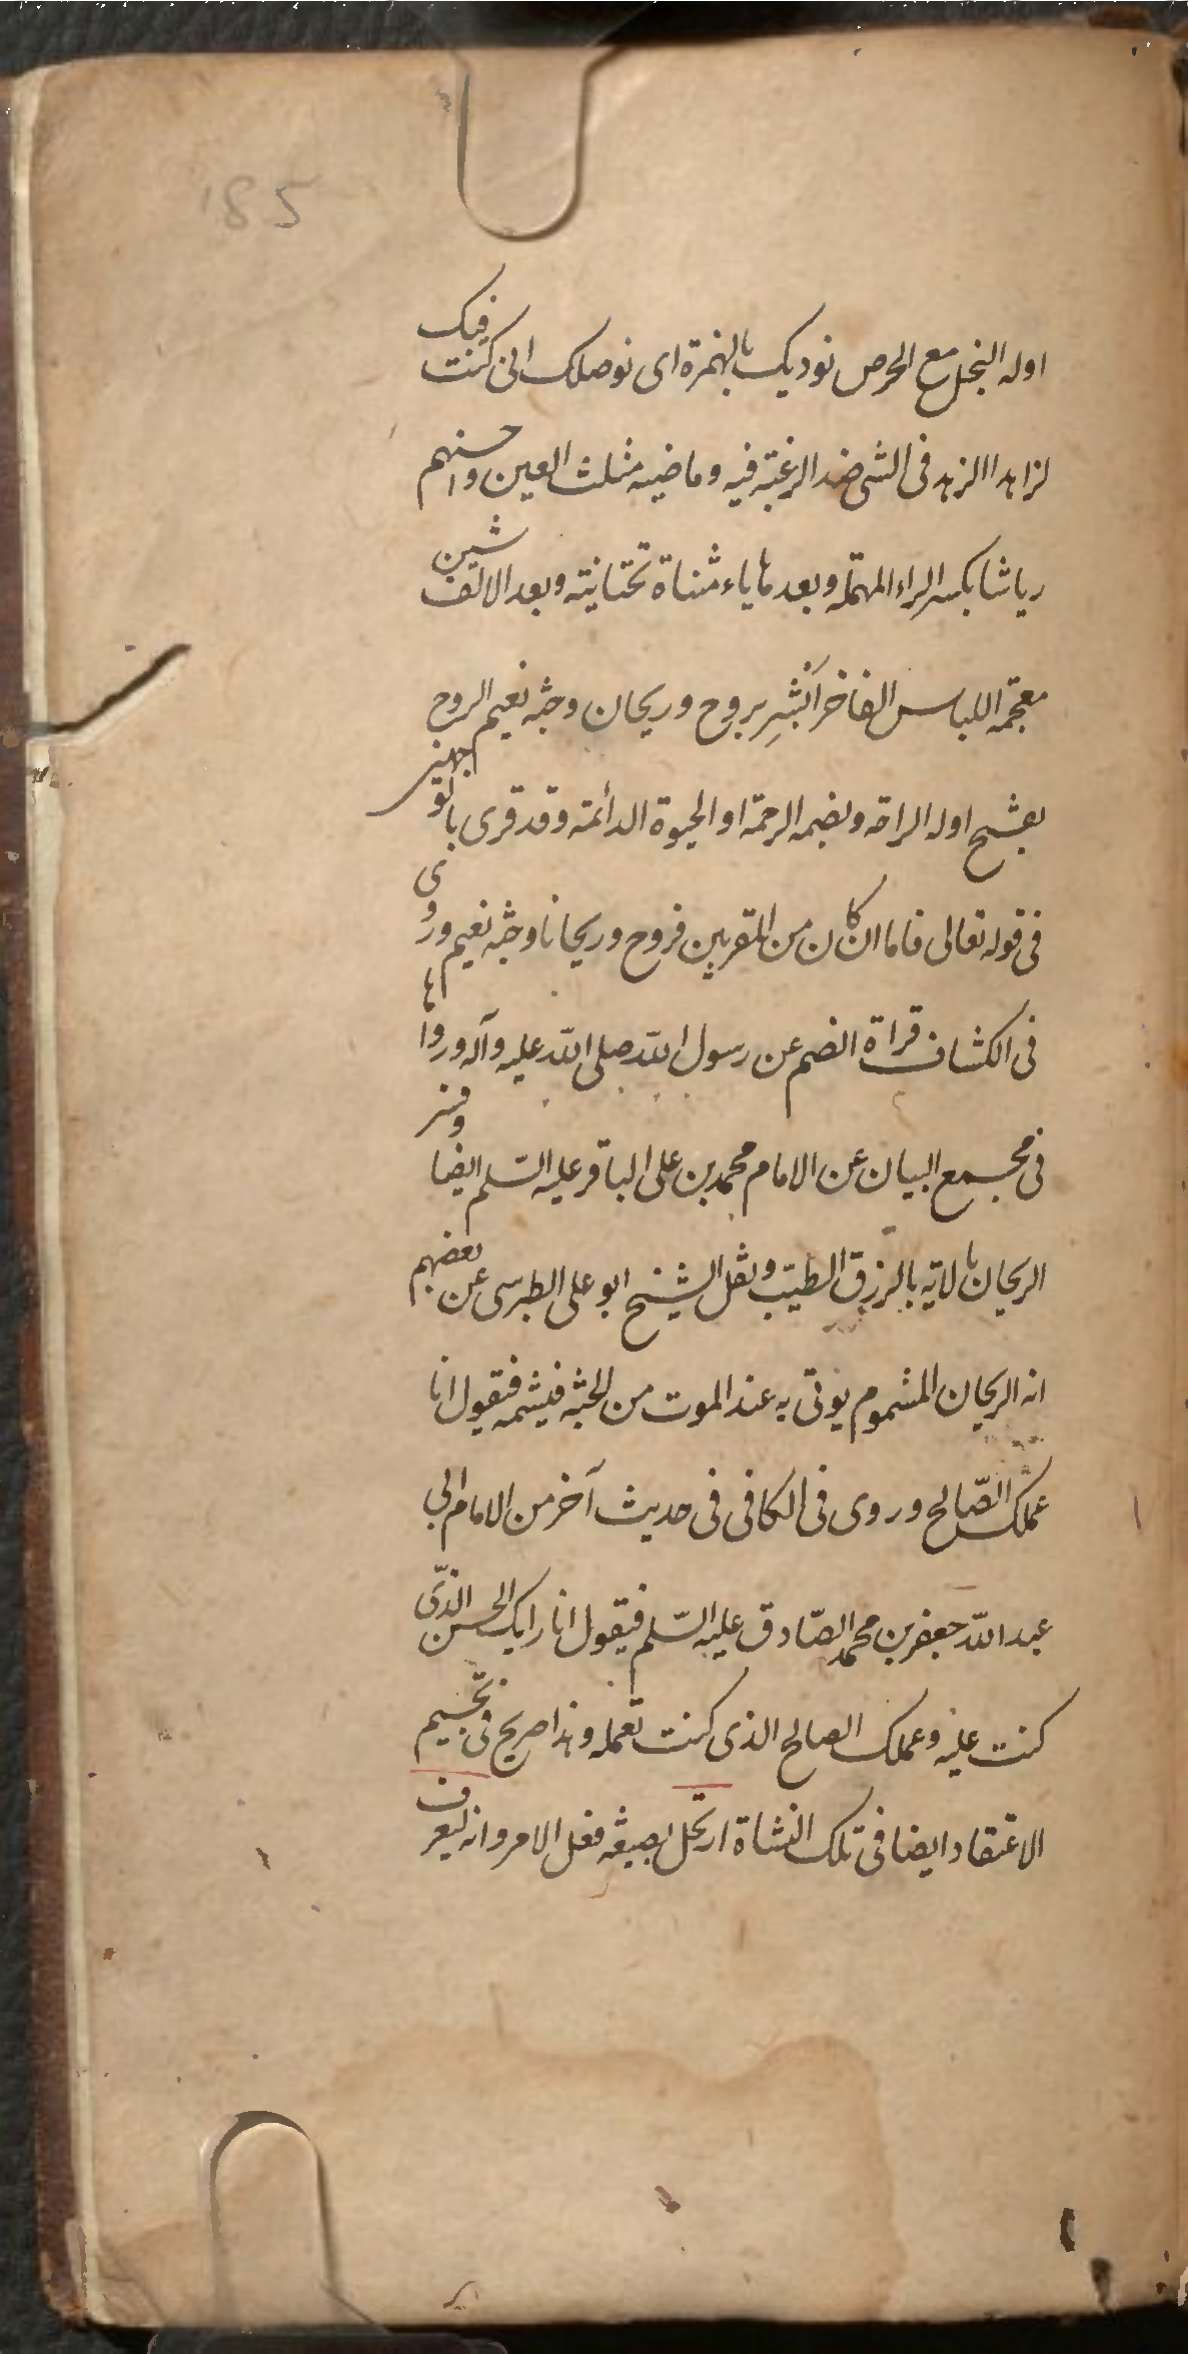 185
اوله البخل مع الحرص نوديك بالهمزة اى نوصلك ان كنت فيك
لزاهدا الزهد فى الشى ضد الرغبة فيه وماضيه مثلث العين واحسنهم
رياشا بكسر الراء المهملة وبعدها ياء مثناة تحتانية وبعد الالف شين
معجمة اللباس الفاخر اَبْشِر بروح وريحان وجنة نعيم الروح
بفتح اوله الراحة وبضمه الرحمة او الحيوة الدائمة وقد قرى بالوجهين
فى قوله تعالى فاما ان كان من المقربين فروح وريحان وجنة نعيم وروى
فى الكشاف قراة الضم عن رسول الله صلى الله عليه وآله ورواها
فى مجمع البيان عن الامام محمد بن على الباقر عليه السّلم ايضا وفسر
الريحان بالاية بالرزق الطيّب ونقل الشيخ ابو على الطبرسى عن بعضهم
انه الريحان المشموم يوتى به عند الموت من الجنة فيشمه فيقول انا
عملك الصّالح وروى فى الكافى فى حديث آخر من الامام ابى
عبد الله جعفر بن محمد الصّادق عليه السّلم فيقول انا رايك الحسن الذّى
كنت عليه وعملك الصالح الذى كنت تعمله وهذا صريح فى تجسيم
الاعتقاد ايضا فى تلك النشاة ارتحل بصيغة فعل الامر وانه ليعرف